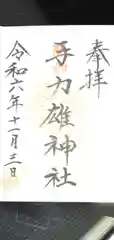 奉拝
手力雄神社
令和六年十一月三日